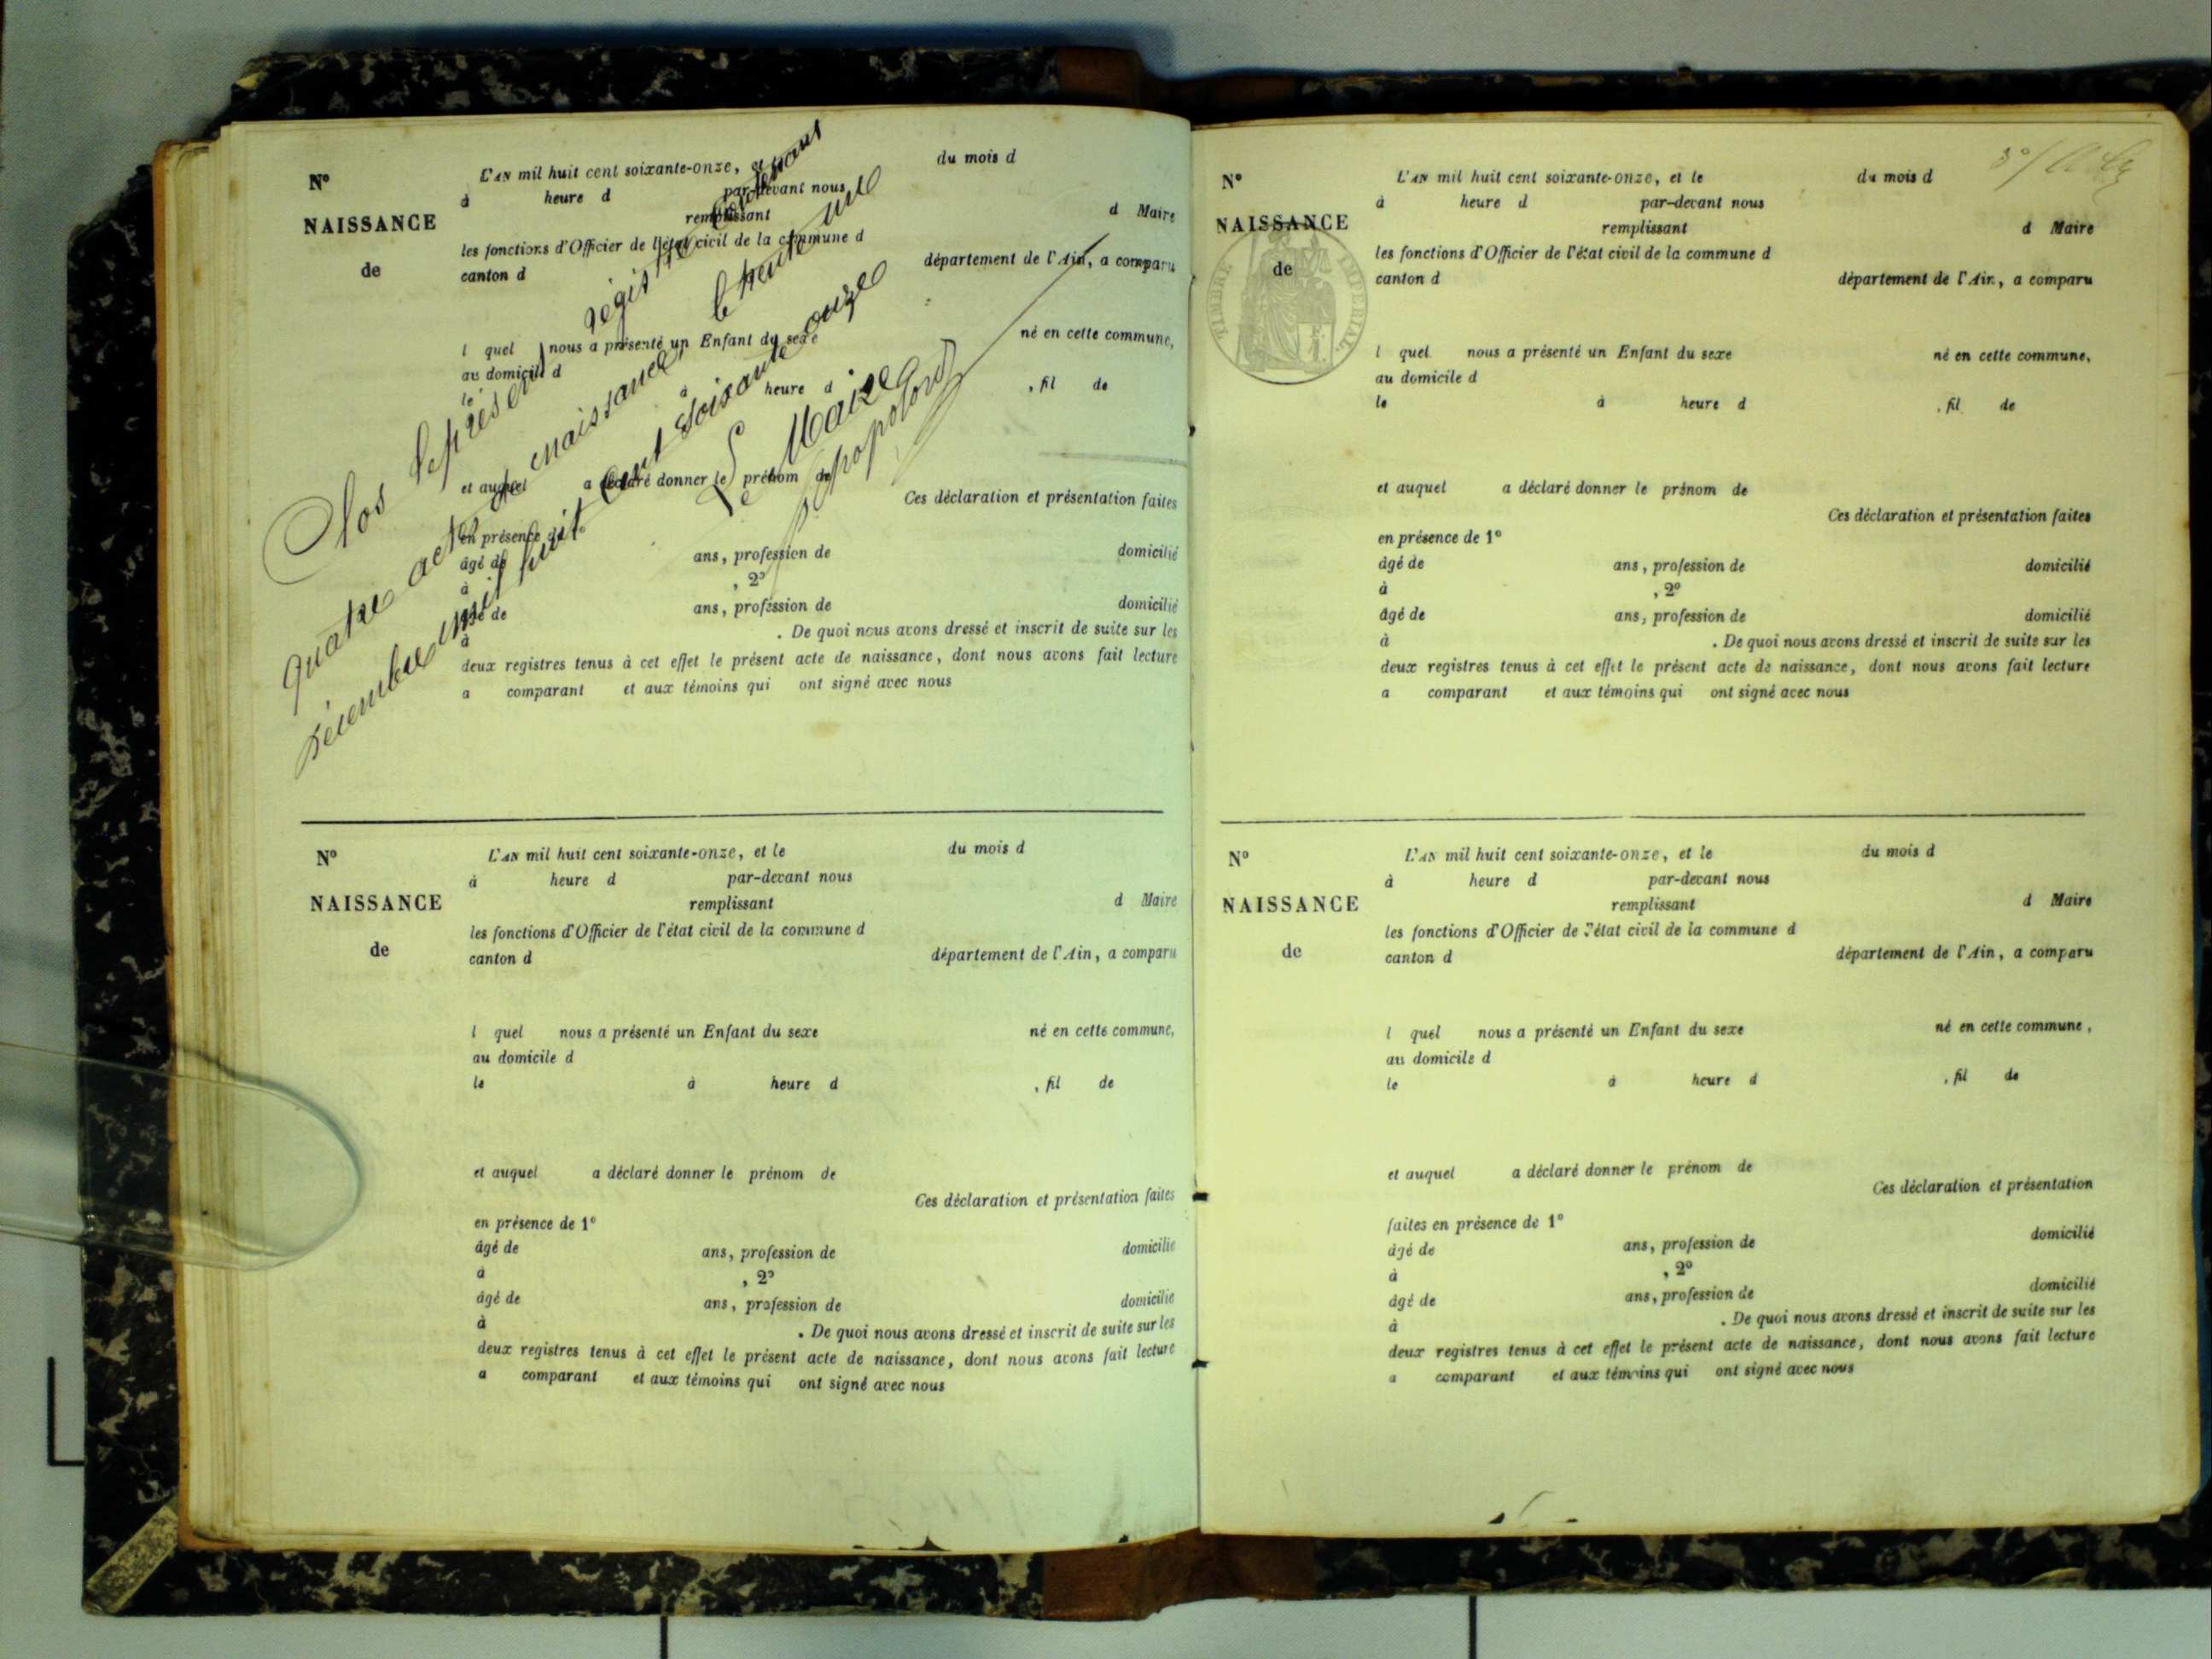 Nº
NAISSANCE
de
L'AN mil huit cent soixante-onze,
du mois d
à heure d par-devant nous
remplissant d Maire
les fonctions d'Officier de l'état civil de la commune d
canton d département de l'Ain, a comparu
l quel nous a présenté un Enfant du sexe né en cette commune,
au domicile d
le à heure d , fil de
et auquel a déclaré donner le prénom de
Ces déclaration et présentation faites
en présence
âgé de ans, profession de domicilié
à , 2º
âgé de ans, profession de domicilié
à . De quoi nous avons dressé et inscrit de suite sur les
deux registres tenus à cet effet le présent acte de naissance, dont nous avons fait lecture
a comparant et aux témoins qui ont signé avec nous
Clos le présent registre contenant
quatre actes de naissance, le trente un
Décembre mil huit cent soixante onze
Le Maire
Nº
NAISSANCE
de
L'AN mil huit cent soixante-onze, et le du mois d
à heure d par-devant nous
remplissant d Maire
les fonctions d'Officier de l'état civil de la commune d
canton d département de l'Ain, a comparu
l quel nous a présenté un Enfant du sexe né en cette commune,
au domicile d
le à heure d , fil de
et auquel a déclaré donner le prénom de
Ces déclaration et présentation faites
en présence de 1º
âgé de ans, profession de domicilié
à , 2º
âgé de ans, profession de domicilié
à . De quoi nous avons dressé et inscrit de suite sur les
deux registres tenus à cet effet le présent acte de naissance, dont nous avons fait lecture
a comparant et aux témoins qui ont signé avec nous
Nº
NAISSANCE
de
TIMBRE IMPERIAL
L'AN mil huit cent soixante-onze, et le du mois d
à heure d par-devant nous
remplissant d Maire
les fonctions d'Officier de l'état civil de la commune d
canton d département de l'Ain, a comparu
l quel nous a présenté un Enfant du sexe né en cette commune,
au domicile d
le à heure d , fil de
et auquel a déclaré donner le prénom de
Ces déclaration et présentation faites
en présence de 1º
âgé de ans, profession de domicilié
à , 2º
âgé de ans, profession de domicilié
à . De quoi nous avons dressé et inscrit de suite sur les
deux registres tenus à cet effet le présent acte de naissance, dont nous avons fait lecture
a comparant et aux témoins qui ont signé avec nous
Nº
NAISSANCE
de
L'AN mil huit cent soixante-onze, et le du mois d
à heure d par-devant nous
remplissant d Maire
les fonctions d'Officier de l'état civil de la commune d
canton d département de l'Ain, a comparu
l quel nous a présenté un Enfant du sexe né en cette commune,
au domicile d
le à heure d , fil de
et auquel a déclaré donner le prénom de
Ces déclaration et présentation
faites en présence de 1º
âgé de ans, profession de domicilié
à , 2º
âgé de ans, profession de domicilié
à . De quoi nous avons dressé et inscrit de suite sur les
deux registres tenus à cet effet le présent acte de naissance, dont nous avons fait lecture
a comparant et aux témoins qui ont signé avec nous